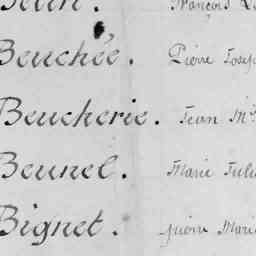 Beuchée. Pierre Josep
Beucherie. Jean M
Beunel. Marie Juli
Bignet. pierre Marie